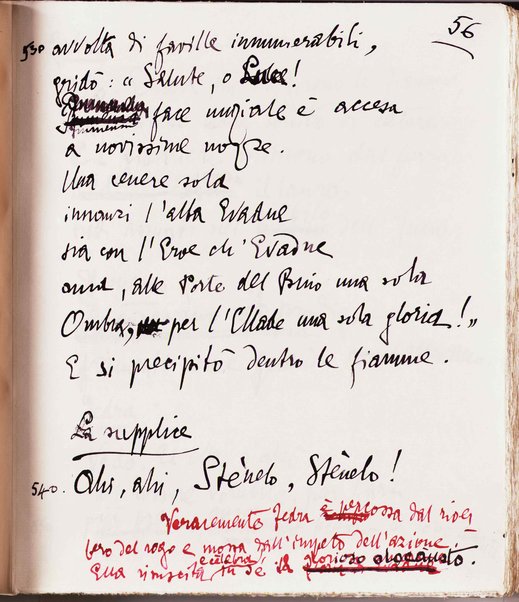 56
530 avvolta di faville innumerabili,
gridò: « Salute, o Luce!
face nuziale è accesa
a novissime nozze.
Una cenere sola
innanzi l'alba Evadne
sia con l'Eroe ch'Evadne
ama, alle Porte del Buio una sola
Ombra, per l'Ellade una sola gloria!»
E si precipitò dentro le fiamme.
La supplice
540. Ahi, ahi, Stènelo, Stènelo!
Veracemente Fedra è percossa dal river
bero del rogo e mossa dall'impeto dell'azione.
Ella rinascita celebra in sé il glorioso olocausto.